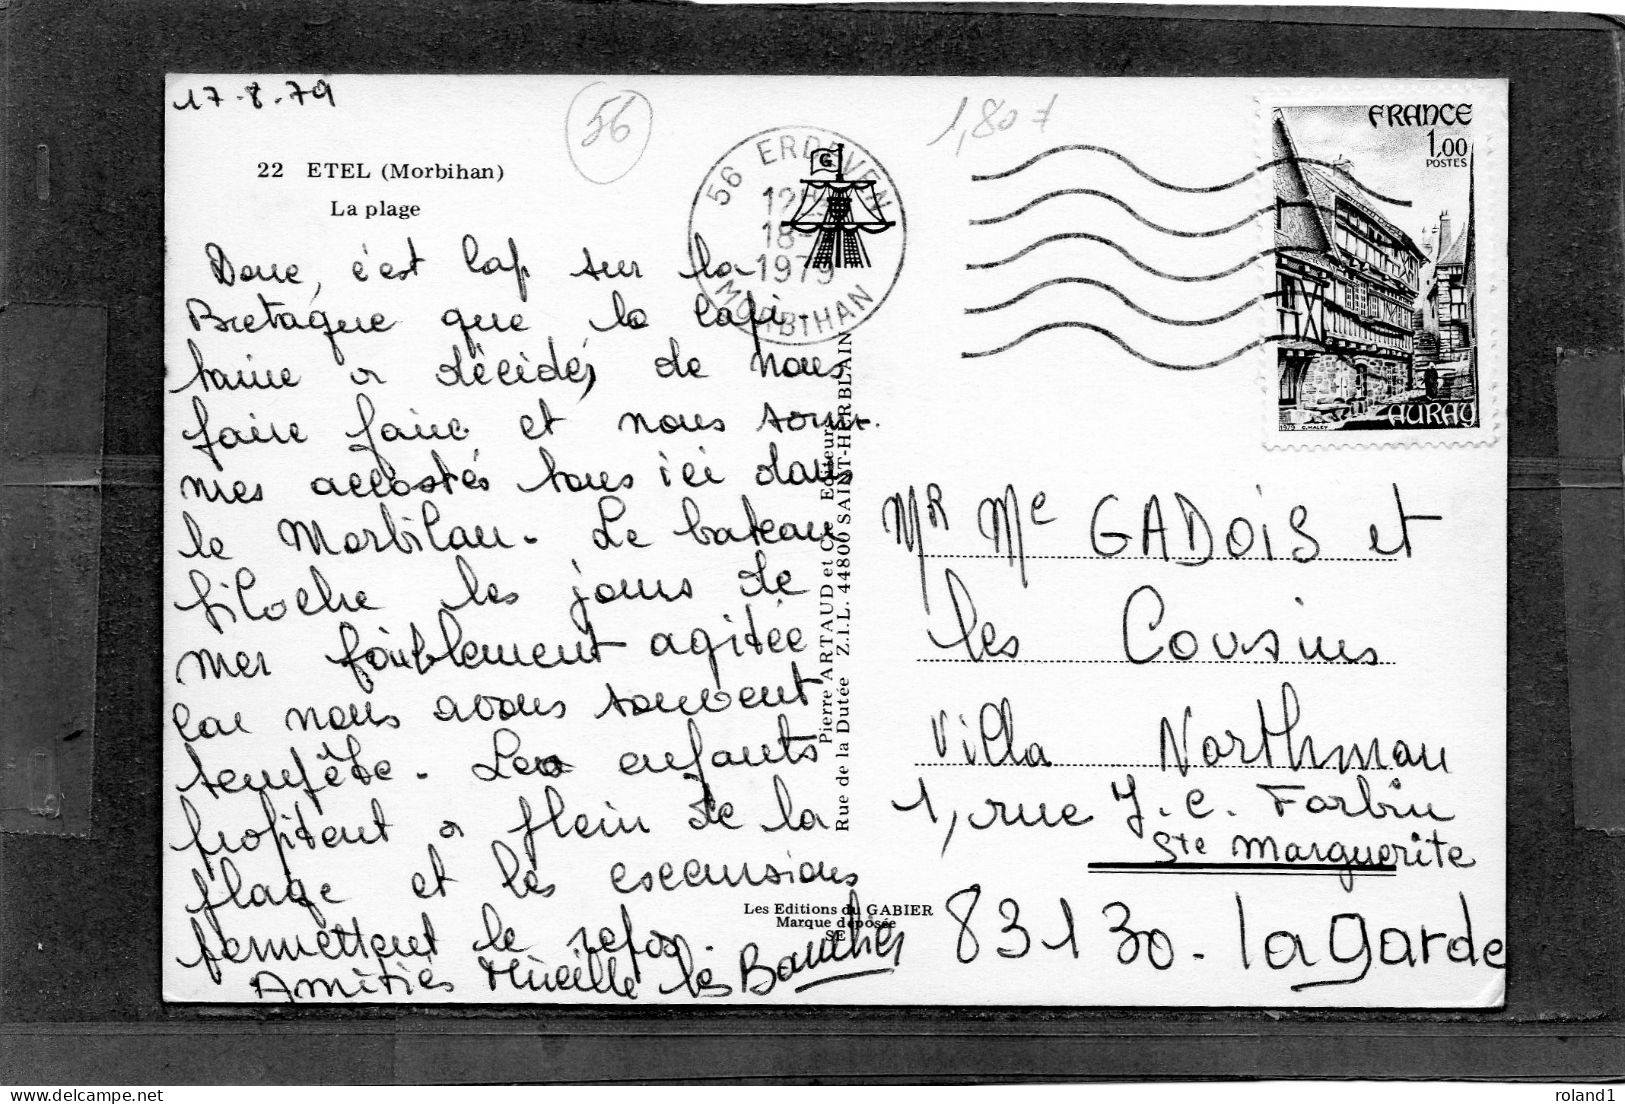 17.8.79
56
1,807
22 ETEL (Morbihan)
La plage
56 ERDEVEN
12H
18-
1979
MORBIHAN
G
FRANCE
1,00
POSTES
AURAY
1979 C.HALEY
Donc, c'est cap sur la
Bretagne que la capi-
taine a décidés de nous
faire faire et nous som-
mes accostés tous ici dans
le Morbihan. Le bateau
filoche les jours de
mer faiblement agitée
car nous avons souvent
tempête. Les enfants
profitent à plein de la
plage et les escursions
permettent le repos.
Amitiés Mireille les Boucher
Pierre ARTAUD et Cie Editeurs
Rue de la Dutée Z.I.L. 44800 SAINT-HERBLAIN
Les Editions du GABIER
Marque déposée
SE
Mr Me GADOIS et
les Cousins
Villa Northman
1, rue J. C. Forbin
Ste Marguerite
83130 - la garde
roland1